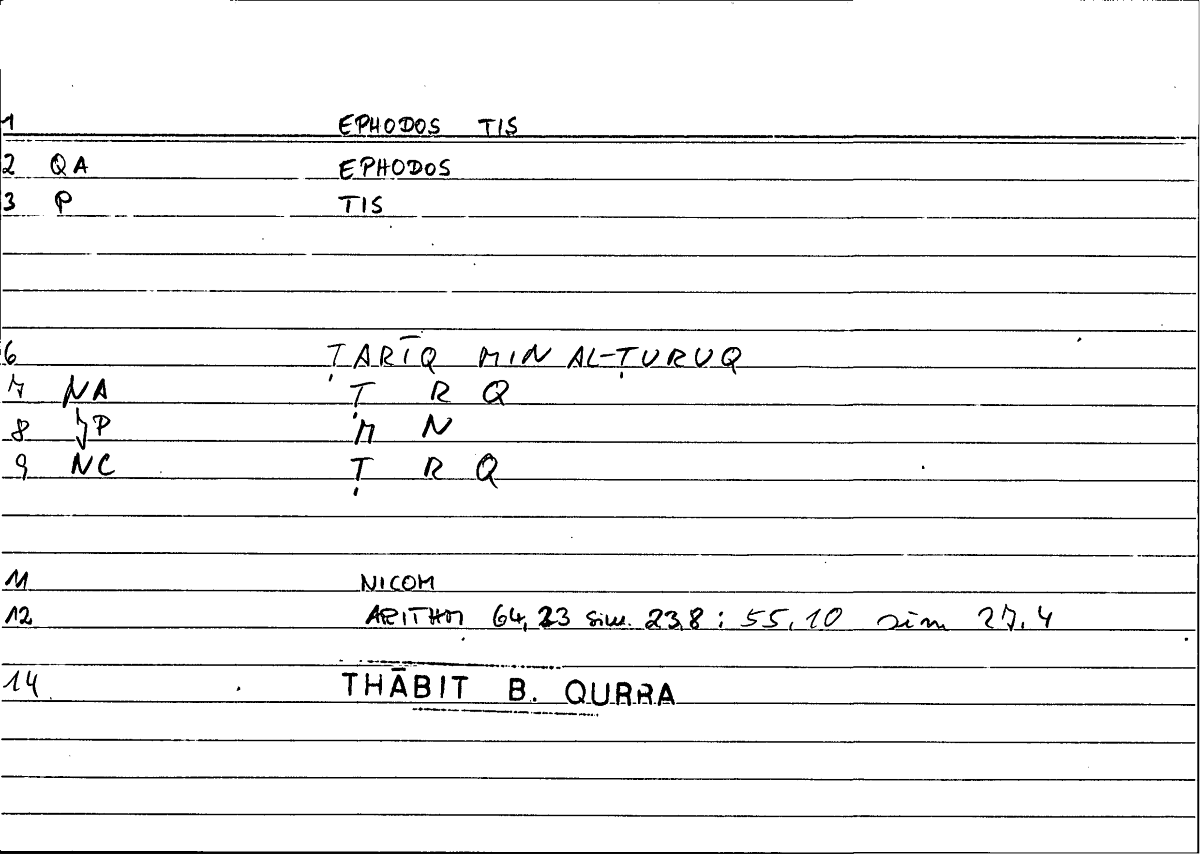 1 EPHODOS TIS
2 QA EPHODOS
3 P TIS
6 ṬARĪQ MIN AL-ṬURUQ
7 NA Ṭ R Q
8 P M N
9 NC Ṭ R Q
11 NICOM
12 ARITHM 64,23 sim. 23,8 : 55,10 sim 27,4
14 THĀBIT B. QURRA